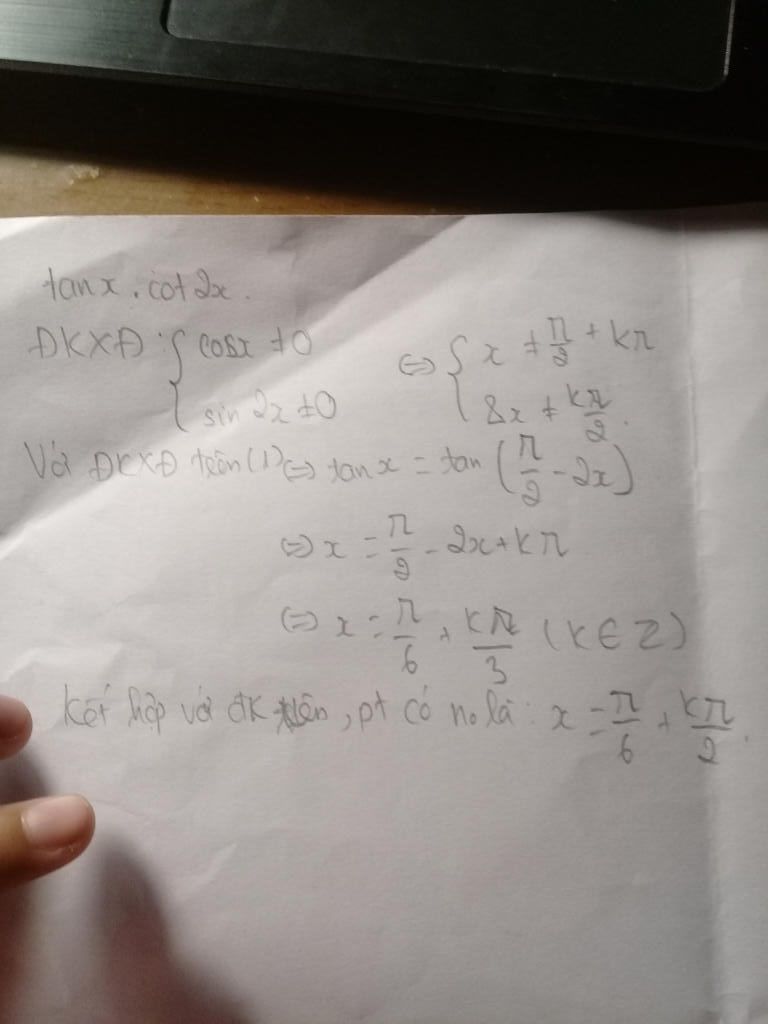 tan x . cot 2x.
ĐKXĐ: { cosx ≠ 0 ⇔ { x ≠ π/2 + kπ
sin 2x ≠ 0 x ≠ kπ/2.
Với ĐKXĐ trên (1) ⇔ tan x = tan (π/2 - 2x)
⇔ x = π/2 - 2x + kπ
⇔ x = π/6 + kπ/3 (k ∈ Z)
Kết hợp với đk trên, pt có no là: x = π/6 + kπ/2.